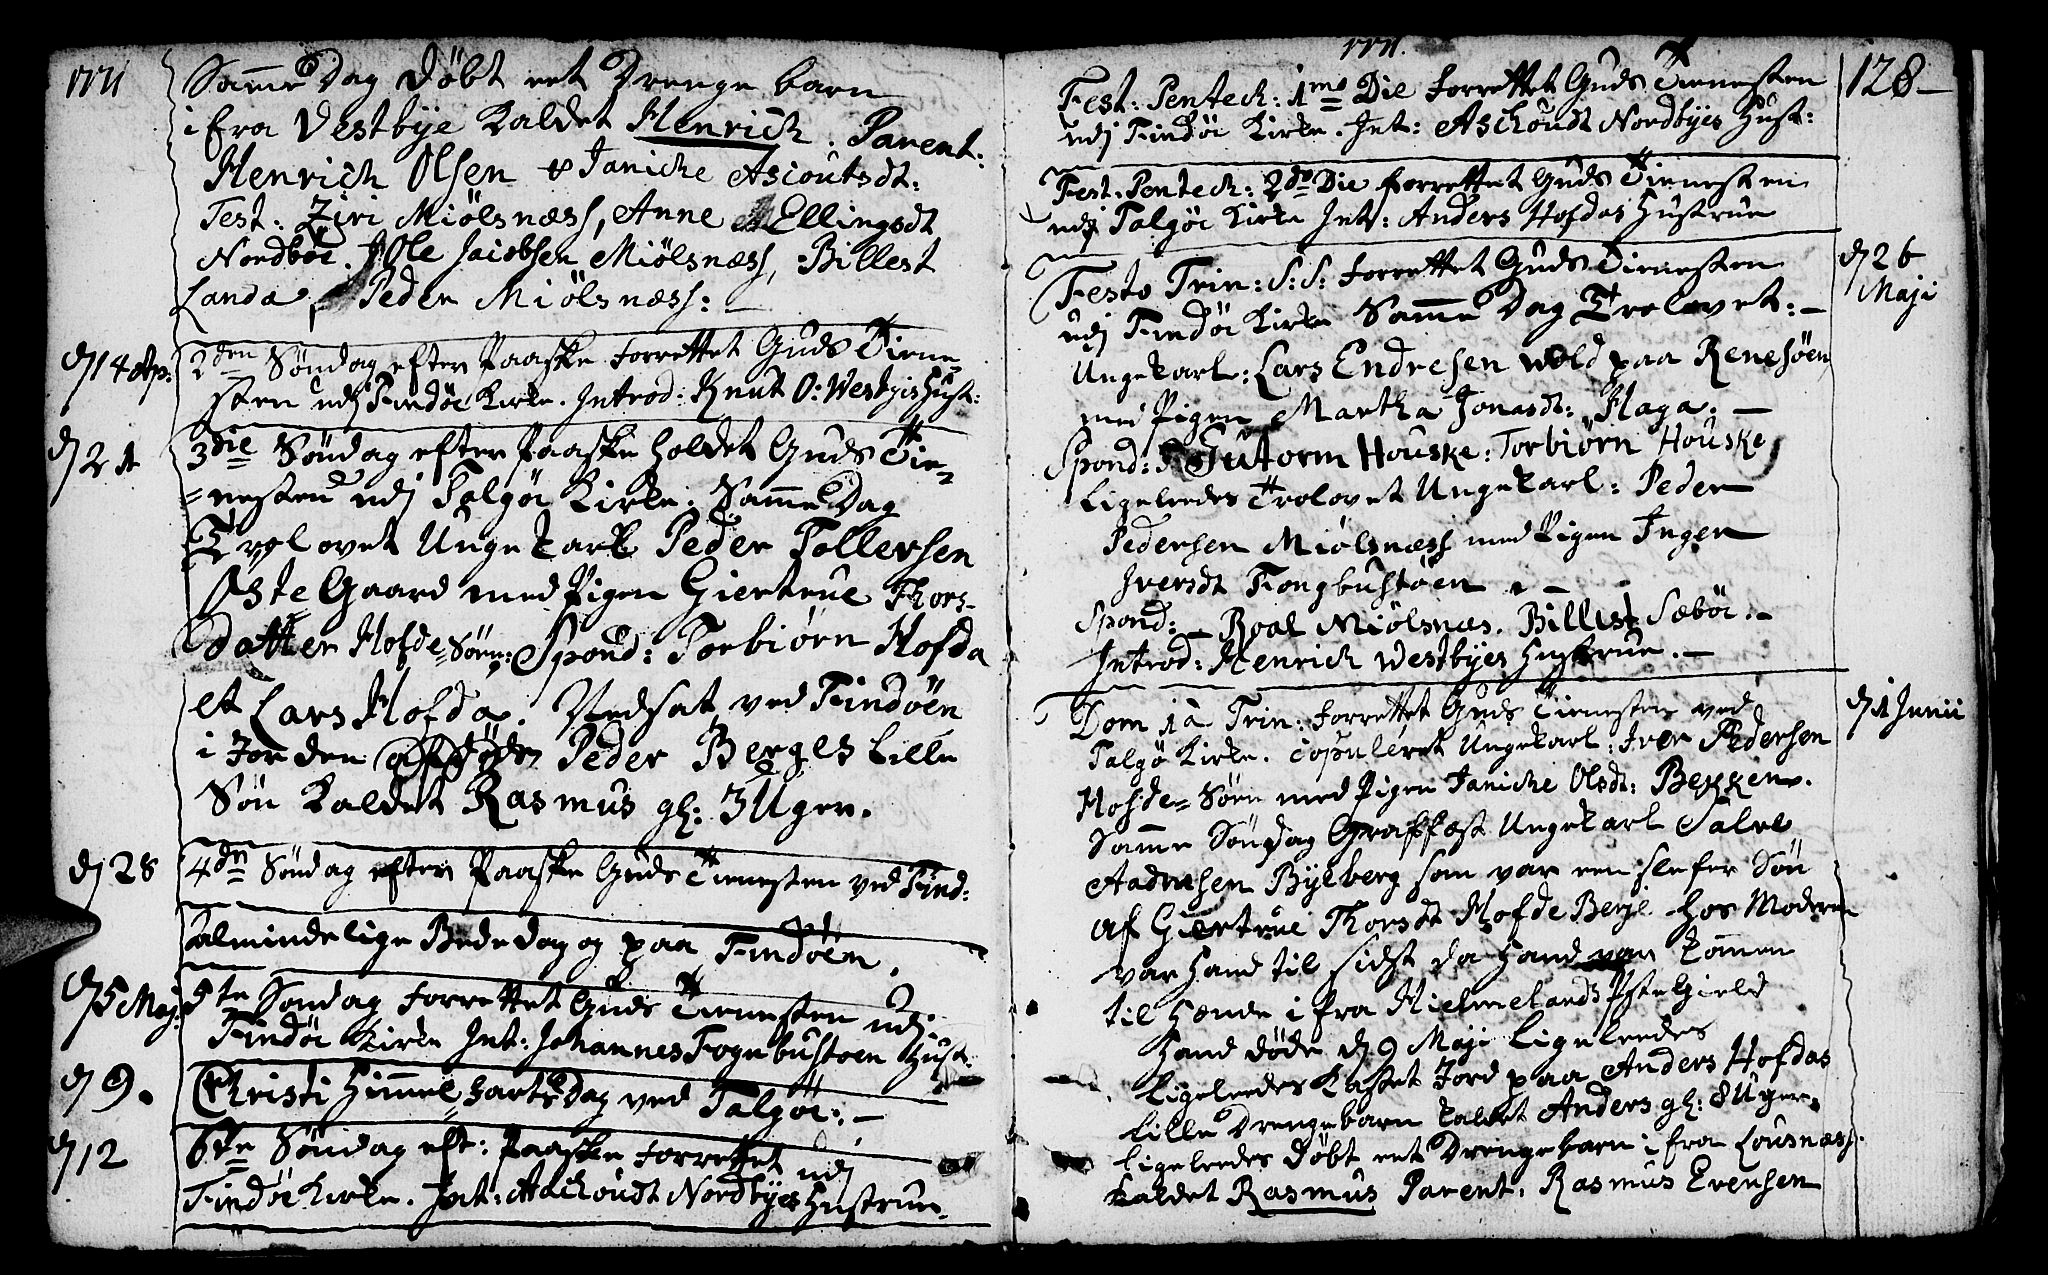 1771
Samme Dag döbt eet Drenge barn
ifra Vestbÿe kaldet Henrich. Parent:
Henrich Olsen & Janiche Ascoutsdt:
Test: Ziri Miölsnæss, Anne Ellingsdt
Nordböe. Ole Jacobsen Miölsnæss, Billest
Landa, Peder Miölsnæss: –
dj 14 Ap: 2den Söndag efter Paaske forrettet Guds Tiene-
sten udj Findöe Kirke. Introd: Knut O: Westbyis Hust:
dj 21 3die Söndag efter Paaske holdet Guds Tie-
=nesten udj Talgöe Kirke. Samme Dag
Trolovet Ungekarl Peder Tollersen
Öste Gaard med Pigen Giertrue Thors-
datter Hofde=Sörn: Spond: Torbiörn Hofda
et Lars Hofda. Nedsat ved Findöen
i Jorden Peder Berges Lille
Sön kaldet Rasmus gl: 3 Uger.
dj 28 4de Söndag efter Paaske Guds Tienesten ved Find:
almindelige Bededag og paa Findöen.
dj 5 Maj: 5te Söndag forrettet Guds Tienesten udj
Findöe Kirke Int: Johannes Fogebustoen Hust:
dj 9. Christi Himmelfarts Dag ved Talgöe: –
dj 12 6te Söndag eft: Paaske forrettet udj
Findöe Kirke. Int: Aschoudt Nordbÿes Hustrue.
1771.
128 –
Fest: Pentech: 1mo Die forrettet Guds Tienesten
udj Findöe Kirke. Int: Aschoudt Nordbÿes Hust:
Fest: Pentech: 2do Die forrettet Guds Tienesten
udj Talgöe Kirke Int: Anders Hofdas Hustrue
dj 26 Maji
Festo Trin: S: S: forrettet Guds Tienesten
udj Findöe Kirke Samme Dag Trolovet: –
Ungekarl: Lars Endresen Wold paa Renesöen
med Pigen Martha Jonasdt: Haga. –
Spond: Gutorm Houske: Torbiörn Houske
Ligeledes Trolovet Ungekarl: Peder
Pedersen Miölsnæss med Pigen Inger
Iversdt Fongbustöen. –
Spond: – Roal Miölsnæs. Billest Sæböe. –
Introd: Henrich Westbÿes Hustrue. –
dj 1 Junii
Dom 1 a Trin: forrettet Guds Tienesten ved
Talgö Kirke. Copuleret Ungekarl: Iver Pedersen
Hofde=Sörn med Pigen Janiche Olsdt: Bekken.
Samme Söndag Graffæst Ungekarl Salve
Aadnesen Bÿeberg som var een slefer Sön
af Giertrue Thorsdt Hofde Berje hos Moderen
var Hand til sidst da Hand var kommen
til hænde ifra Hielmelands Pste Gield
Hand döde dj 9 Maji Ligeledes
Ligeledes kastet Jord paa Anders Hofdas
Lille Drengebarn kaldet Anders gl: 8 Uger.
Ligeledes döbt eet Drengebarn ifra Lousnæss.
kaldet Rasmus Parent. Rasmus Evensen